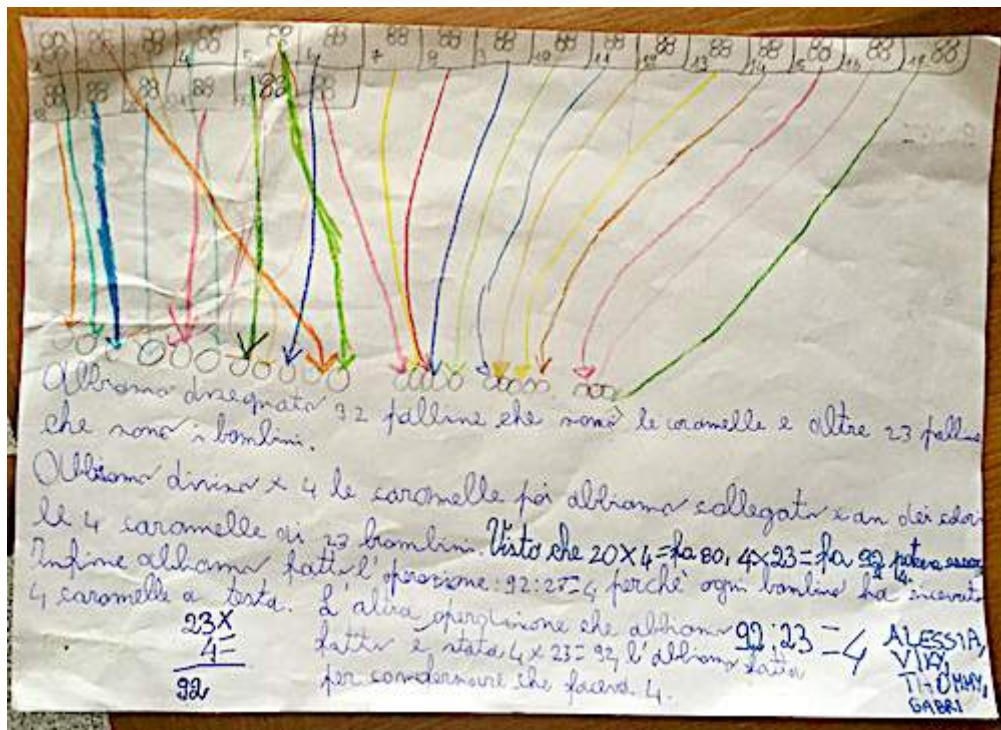 1 2 3 4 5 6 7 8 9 10 11 12 13 14 15 16 17
18
Abbiamo disegnato 92 palline che sono le caramelle e altre 23 palline
che sono i bambini.
Abbiamo diviso x 4 le caramelle poi abbiamo collegato con dei color
le 4 caramelle ai 23 bambini. Visto che 20X4=fa 80, 4X23=fa 92 poteva essere 4.
Infine abbiamo fatto l'operazione: 92:23=4 perchè ogni bambino ha ricevuto
4 caramelle a testa. L'altra operazione che abbiamo
fatto è stata 4 x 23=92, l'abbiamo fatta
per confermare che faceva 4.
23X
4=
92
92:23=4
ALESSIA,
VIKY,
THOMMY,
GABRI